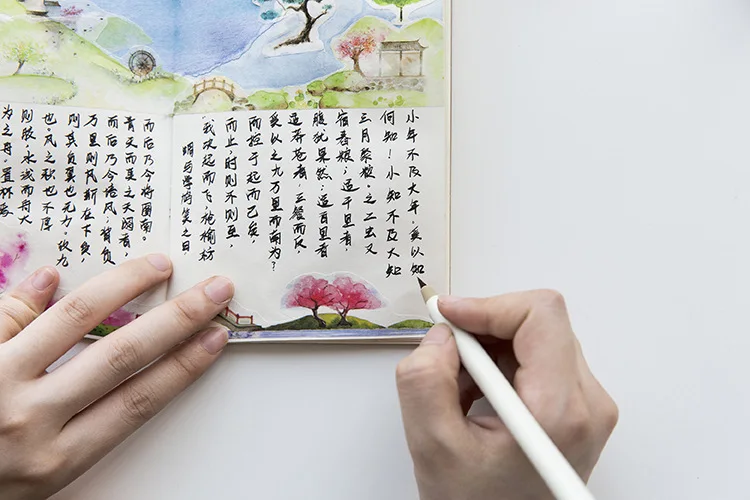 为之舟,置杯焉
则胶,水浅而舟大
也。风之积也不厚
则其负翼也无力。故九
万里则风斯在下矣,
而后乃今培风;背负
青天而莫之夭阏者,
而后乃今将图南。
蜩与学鸠笑之曰:
我决起而飞,抢榆枋
而止,时则不则至,
而控于起而已矣,
奚以之九万里而南为?
适莽苍者,三餐而反,
腹犹果然;适百里者
宿舂粮;适千里者,
三月聚粮。之二虫又
何知!小知不及大知
小年不及大年。奚以知